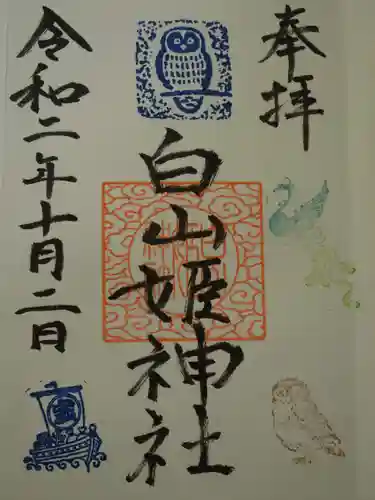 奉拝
白山姫神社
令和二年十月二日